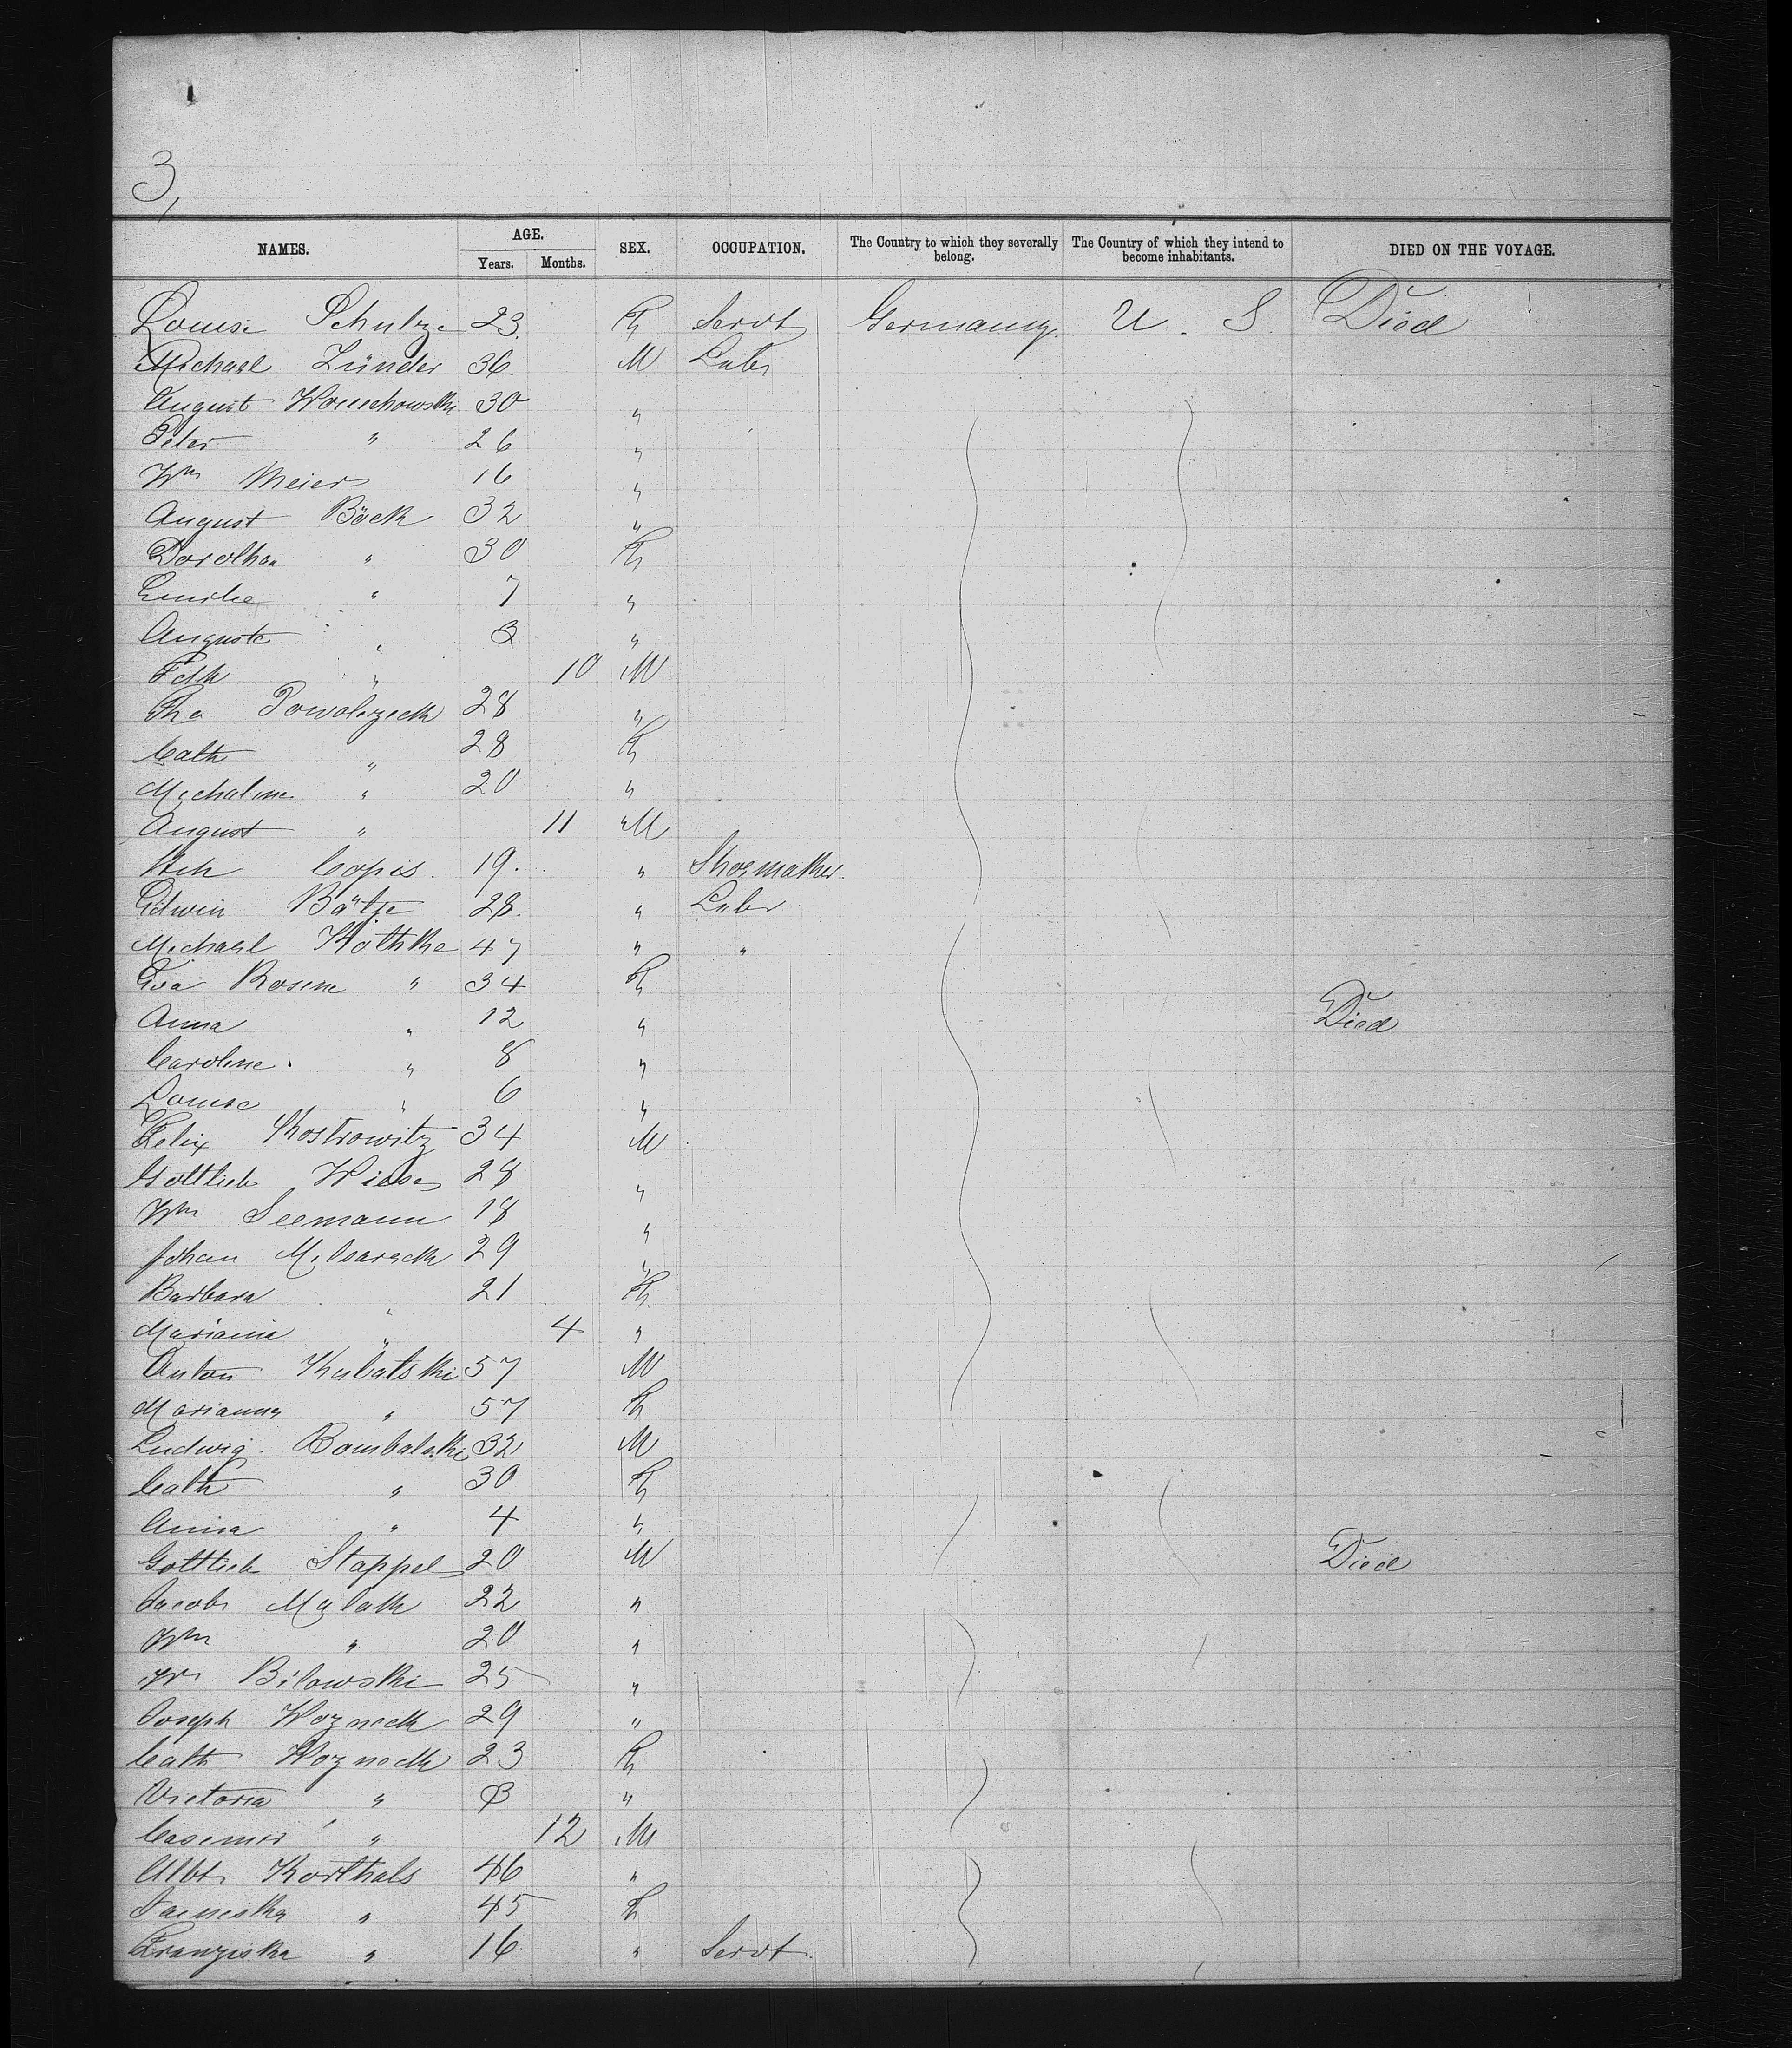 3,
NAMES. AGE. SEX. OCCUPATION. The Country to which they severally belong. The Country of which they intend to become inhabitants. DIED ON THE VOYAGE.
Years. Months.
Louise Schulze 23. F Servt Germany. U. S. Died
Michael Zünder 36. M Labr
August 30 "
Peter " 26 "
Wm Meier 16 "
August Böck 32 "
Dorothea " 30 F
Emilie " 7 "
Auguste " 3 "
Fdk " 10 M
Powolezeck 28 "
Cath " 28 F
Michaline " 20 "
August " 11 M
Copis. 19. " Shoemaker.
Edwin Bätje 28. " Labr
Michael Köthke 47 " "
Eva Rosine " 34 F
Anna " 12 " Died
Caroline. " 8 "
Louise " 6 "
Felix Kostrowitz 34 M
Gottlieb Wiese 28 "
Wm Seemann 18 "
Johan 29 "
Barbara " 21 F
" 4 "
Anton Kubatski 57 M
Marianna " 57 F
Ludwig. Bombalski 32 M
Cath " 30 F
Anna " 4 "
Gottlieb Stappel 20 M Died
Jacob 22 "
Wm " 20 "
Wm Bilowski 25 "
Joseph Wozneck 29 "
Cath Wozneck 23 F
Victoria " 3 "
Casemir " 12 M
Albt Korthals 46 "
" 45 F
Franziska " 16 " Servt.